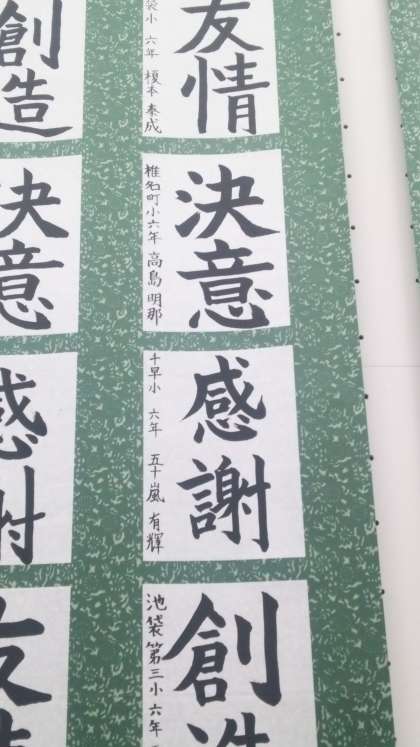 友情
袋小 六年 榎本 奏成
決意
椎名町小 六年 高島 明那
感謝
千早小 六年 五十嵐 有輝
創造
池袋第三小 六年
創造
決意
感謝
友